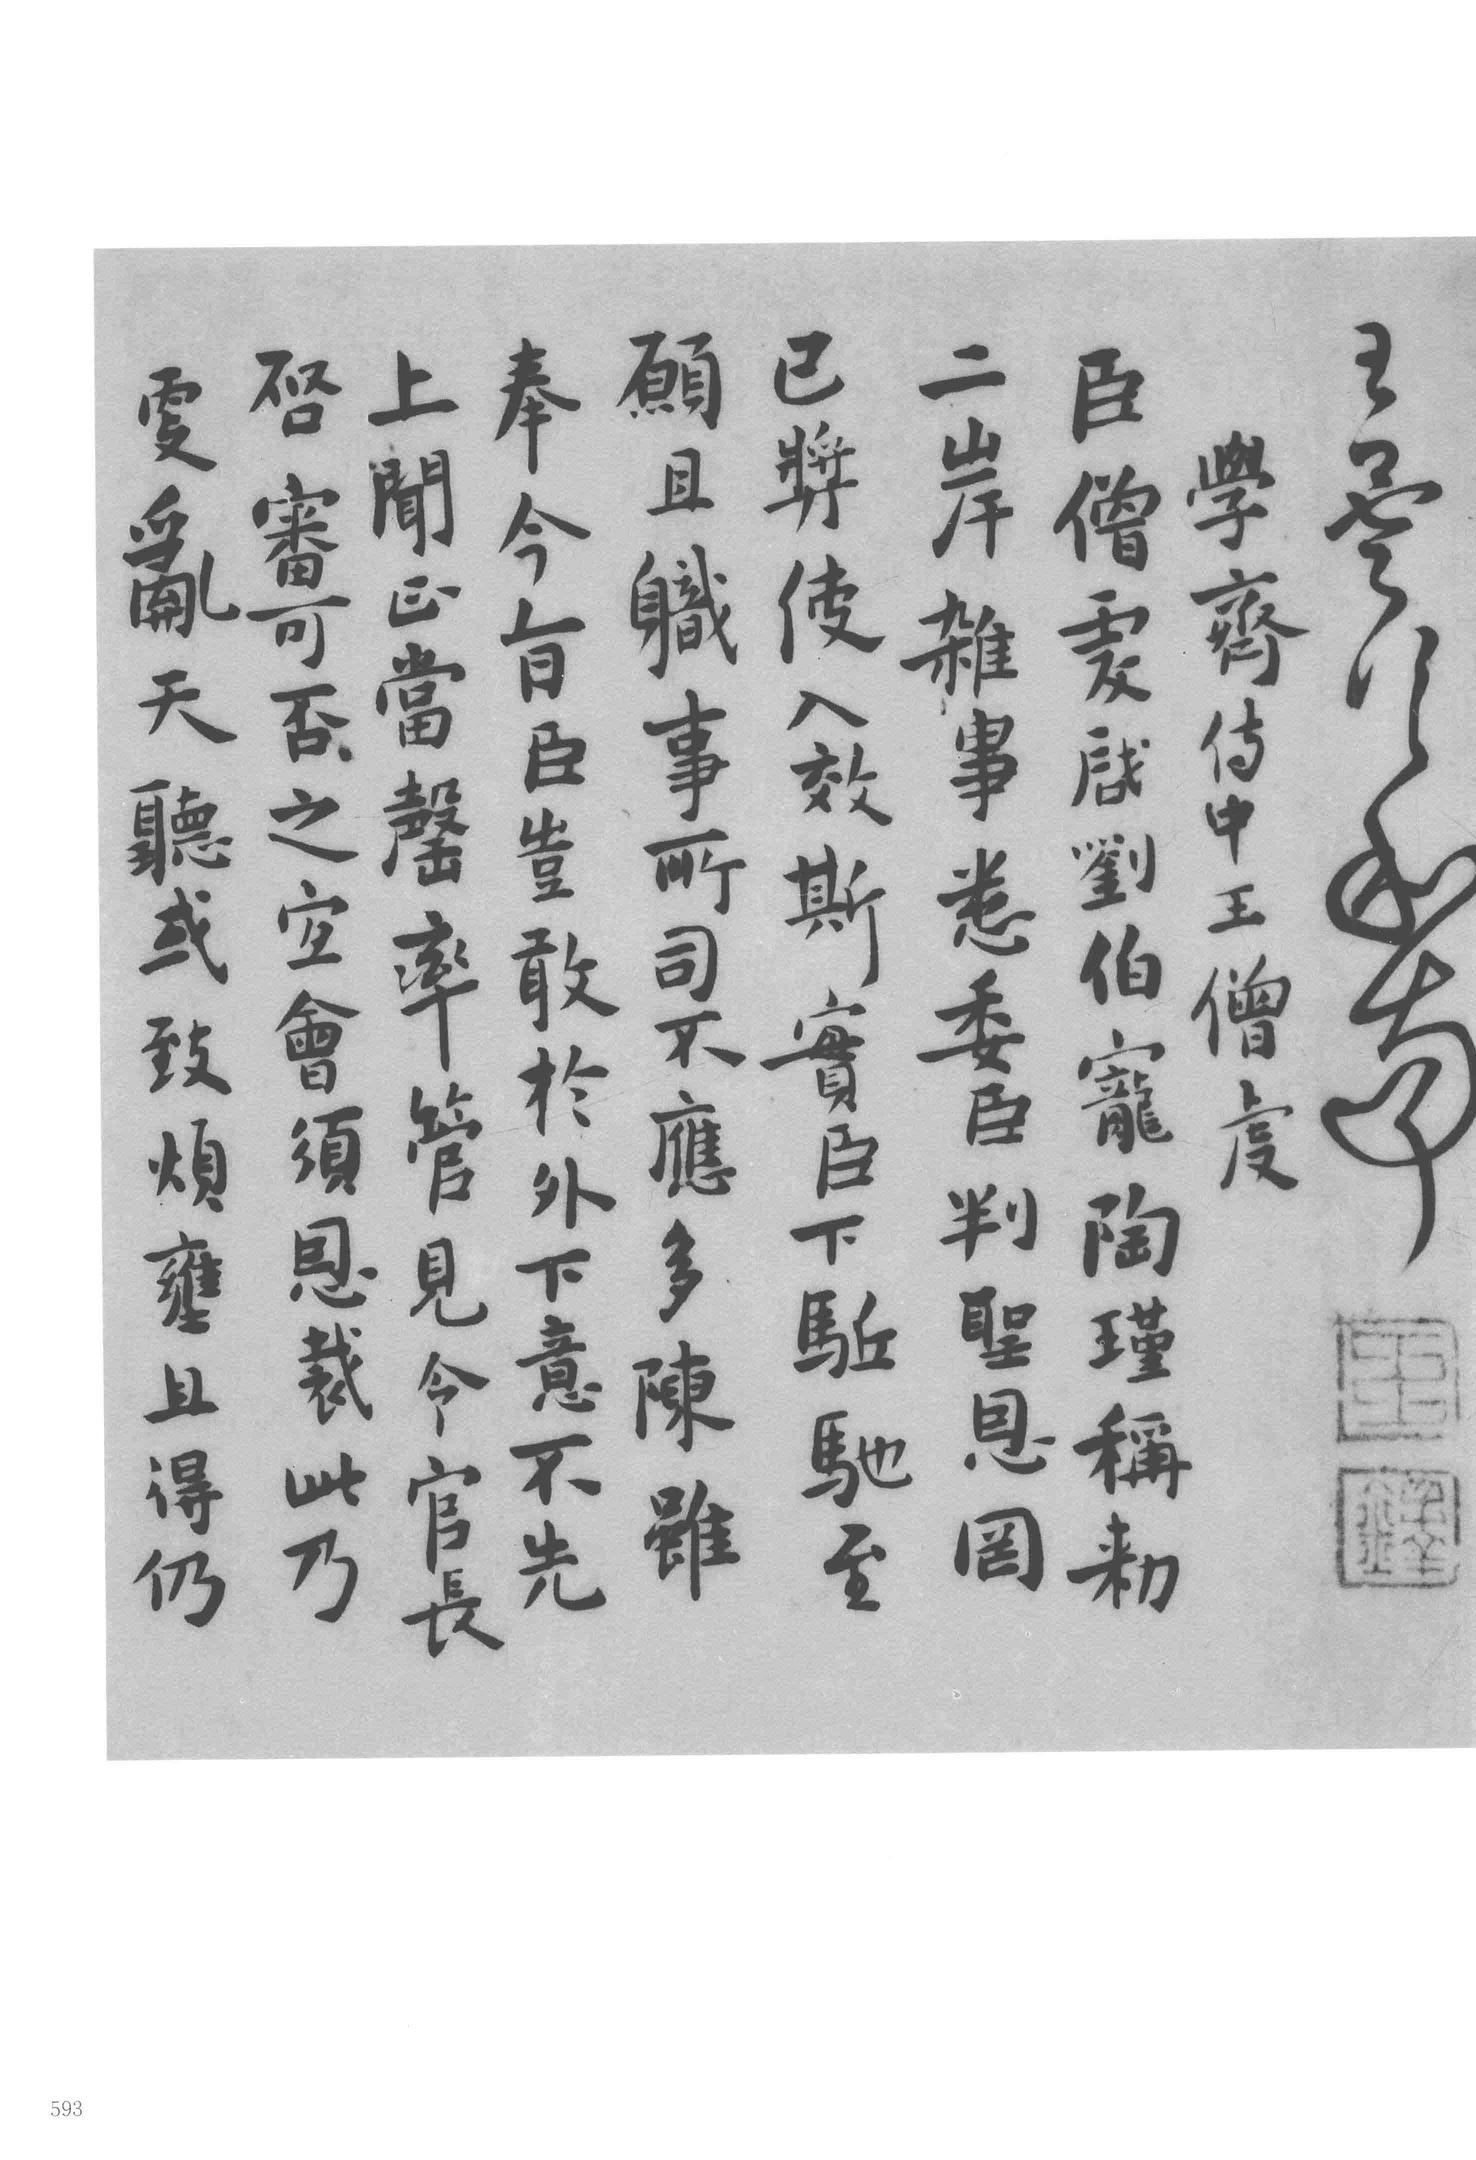 王 和南
學齊侍中王僧虔
臣僧虔啟劉伯寵陶瑾稱勑
二岸雜事悉委臣判聖恩罔
已獎使入效斯實臣下駈馳至
願且職事所司不應多陳雖
奉今旨臣豈敢於外下意不先
上聞正當罄率管見今官長
啓審可否之宜會須恩裁此乃
更亂天聽或致煩壅且得仍
593